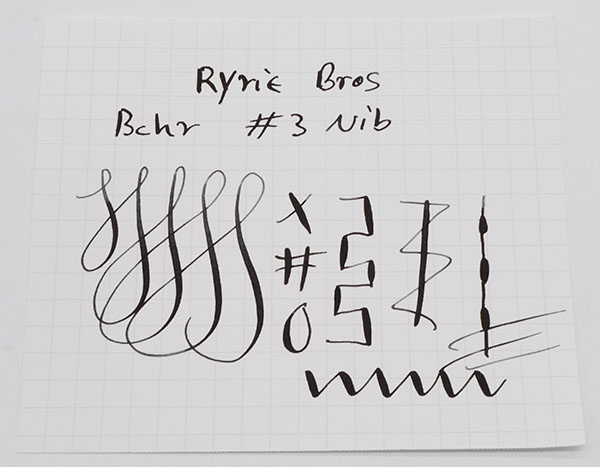 Ryrie Bros
Bchr #3 Nib
X
#
O